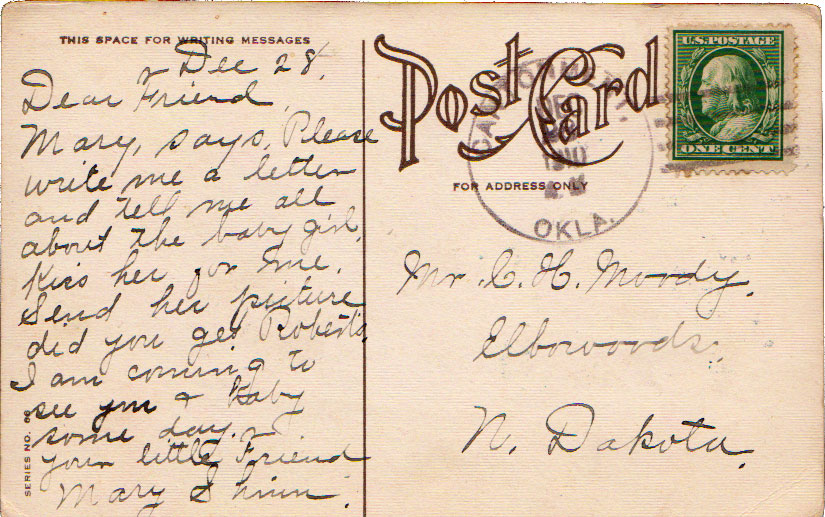 THIS SPACE FOR WRITING MESSAGES
Dec 28,
Dear Friend
Mary, says, Please
write me a letter
and tell me all
about the baby girl,
Kiss her for me.
Send her picture
did you get Roberta's,
I am coming to
see you & baby
some day.
your little Friend
Mary
SERIES NO. 66
Post Card
FOR ADDRESS ONLY
1910
OKLA.
U.S. POSTAGE
ONE CENT
Mr. C. H. Moody,
Elbowoods,
N. Dakota.